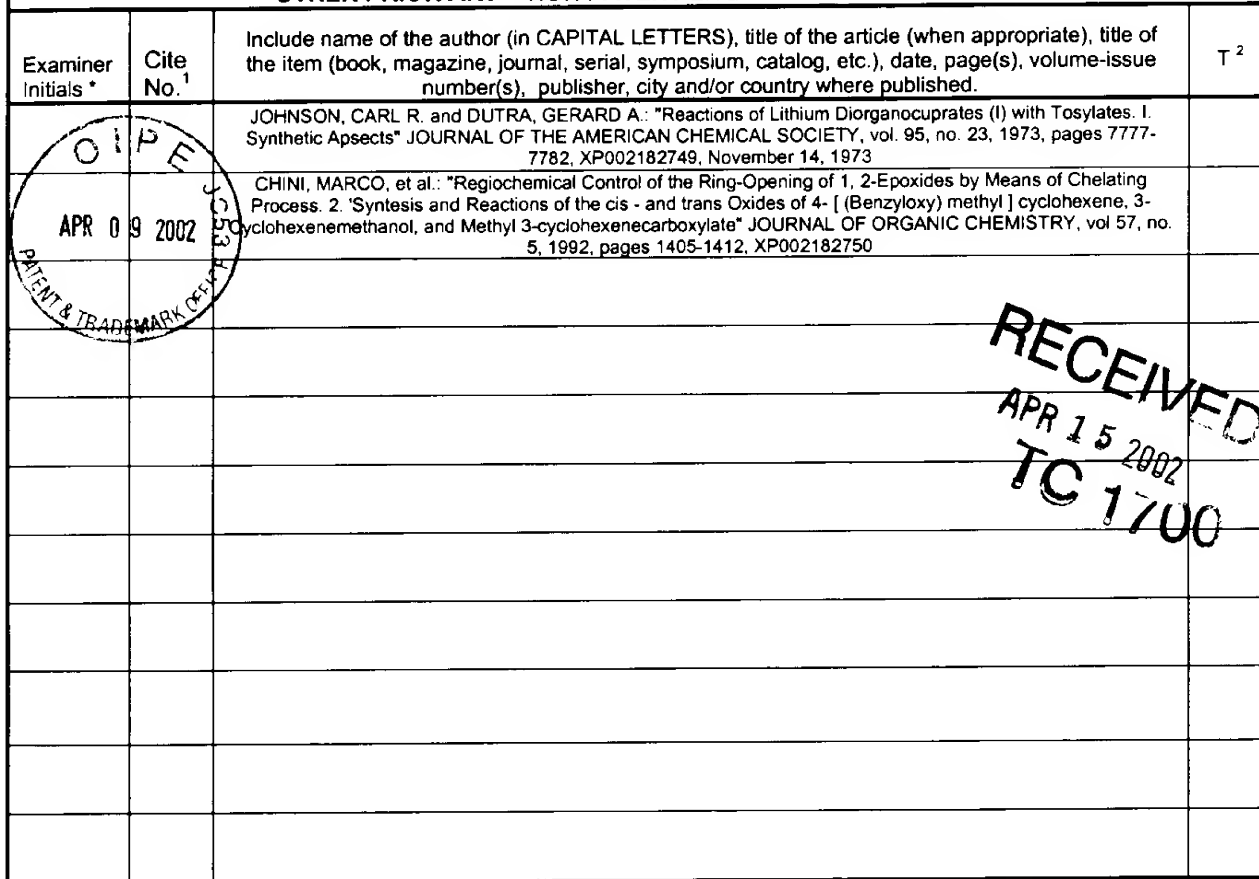 Examiner Initials *
Cite No.1
Include name of the author (in CAPITAL LETTERS), title of the article (when appropriate), title of
the item (book, magazine, journal, serial, symposium, catalog, etc.), date, page(s), volume-issue
number(s), publisher, city and/or country where published.
T 2
JOHNSON, CARL R. and DUTRA, GERARD A.: "Reactions of Lithium Diorganocuprates (I) with Tosylates. I.
Synthetic Apsects" JOURNAL OF THE AMERICAN CHEMICAL SOCIETY, vol. 95, no. 23, 1973, pages 7777-
7782, XP002182749, November 14, 1973
CHINI, MARCO, et al.: "Regiochemical Control of the Ring-Opening of 1, 2-Epoxides by Means of Chelating
Process. 2. 'Syntesis and Reactions of the cis - and trans Oxides of 4- [ (Benzyloxy) methyl ] cyclohexene, 3-
yclohexenemethanol, and Methyl 3-cyclohexenecarboxylate" JOURNAL OF ORGANIC CHEMISTRY, vol 57, no.
5, 1992, pages 1405-1412, XP002182750
O I P E
APR 0 9 2002
PATENT & TRADEMARK OFFICE
RECEIVED
APR 1 5 2002
TC 1700